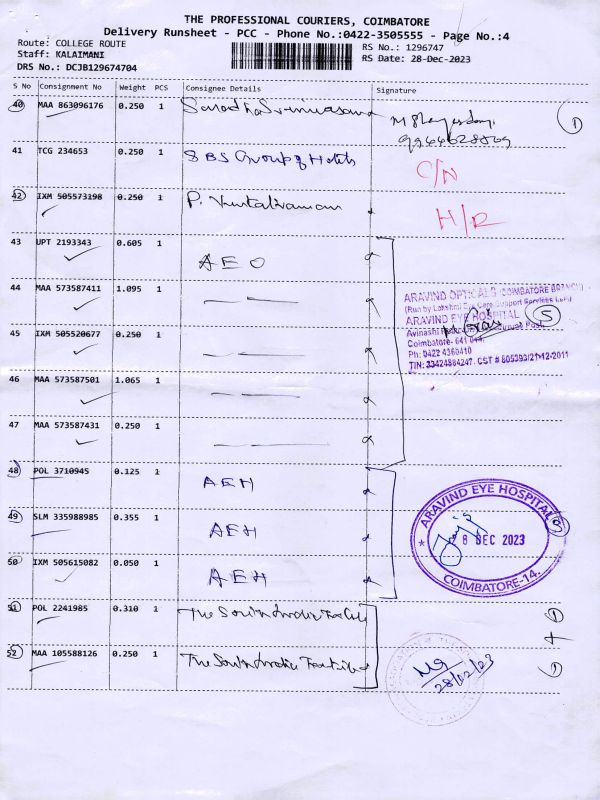 THE PROFESSIONAL COURIERS, COIMBATORE
Delivery Runsheet - PCC - Phone No.:0422-3505555 - Page No.:4
Route: COLLEGE ROUTE
RS No.: 1296747
Staff: KALAIMANI
RS Date: 28-Dec-2023
DRS No.: DCJB129674704
S No Consignment No Weight PCS Consignee Details Signature
40 MAA 863096176 0.250 1 1
41 TCG 234653 0.250 1 SBS Group of Hotels C/N
42 IXM 505573198 0.250 1 P. H/R
43 UPT 2193343 0.605 1 AEO
44 MAA 573587411 1.095 1
ARAVIND OPTICALS (COIMBATORE BRANCH)
(Run by Lakshmi Eye Care Support Services
ARAVIND EYE HOSPITAL
45 IXM 505520677 0.250 1 5
Avinashi Post,
Coimbatore- 641 014.
Ph: 0422 4360410
TIN: 33424884247. CST # 805393/21-12-2011
46 MAA 573587501 1.065 1
47 MAA 573587431 0.250 1
48 POL 3710945 0.125 1 AEH
ARAVIND EYE HOSPITAL
49 SLM 335988985 0.355 1 AEH
8 DEC 2023
50 IXM 505615082 0.050 1 AEH
COIMBATORE-14.
51 POL 2241985 0.310 1 The South India 1
52 MAA 105588126 0.250 1 The South India 1
28/02/23